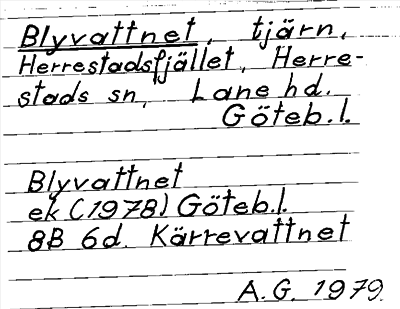 Blyvattnet, tjärn,
Herrestadsfjället, Herre-
stads sn, Lane hd.
Göteb.l.
Blyvattnet
ek (1978) Göteb.l.
8B 6d. Kärrevattnet
A.G. 1979.